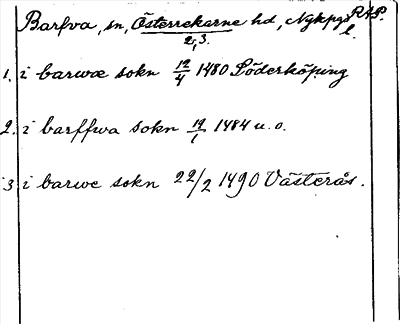 Barfva, sn, Österrekarne hd, Nykpgs l. RAP.
2, 3.
1. i barwæ sokn 12/4 1480 Söderköping
2. i barffwa sokn 19/1 1484 u. o.
3 i barwe sokn 22/2 1490 Västerås.